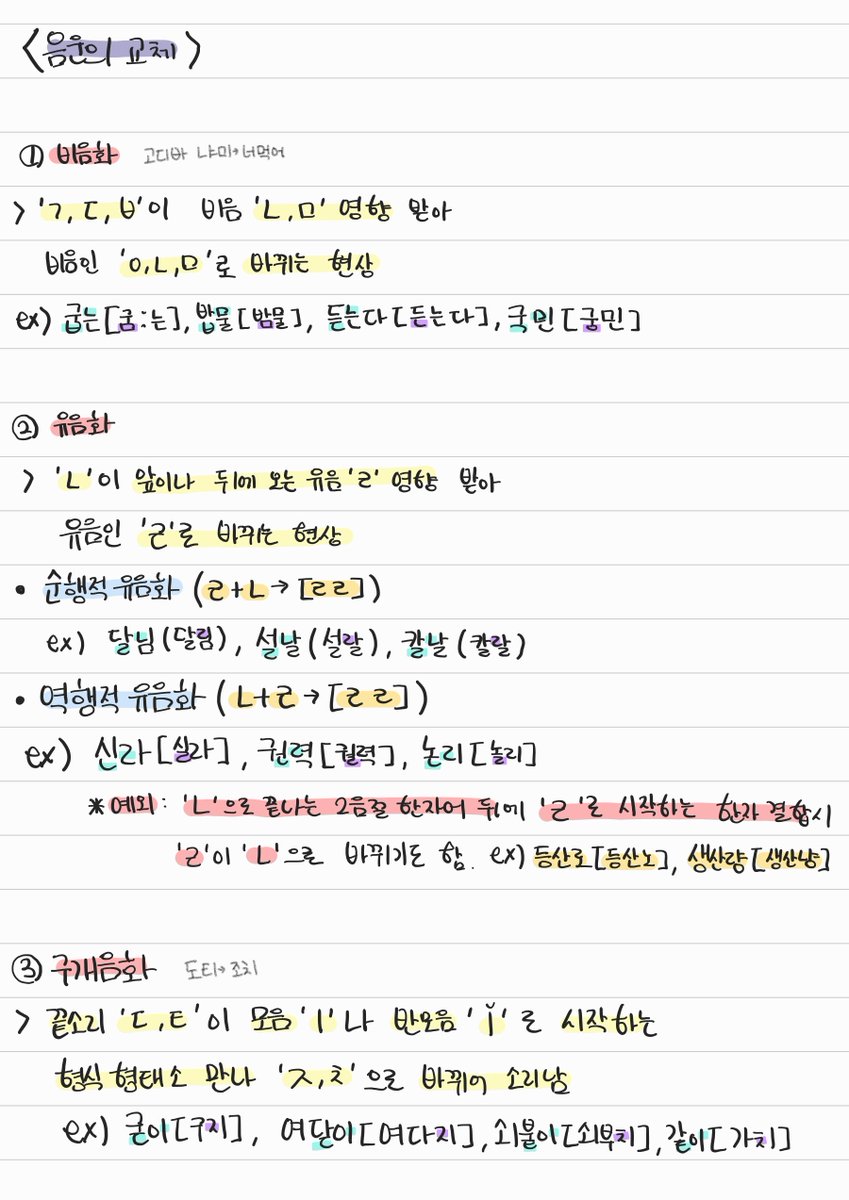 <음운의 교체>
① 비음화 고디바 냐미→너먹어
> 'ㄱ, ㄷ, ㅂ'이 비음 'ㄴ, ㅁ' 영향 받아
비음인 'ㅇ,ㄴ,ㅁ'로 바뀌는 현상
ex) 굽는[굼:는], 밥물[밤물], 듣는다[든는다], 국민[궁민]
② 유음화
> 'ㄴ'이 앞이나 뒤에 오는 유음 'ㄹ' 영향 받아
유음인 'ㄹ'로 바뀌는 현상
• 순행적 유음화 (ㄹ+ㄴ→[ㄹㄹ])
ex) 달님(달림), 설날(설랄), 칼날(칼랄)
• 역행적 유음화 (ㄴ+ㄹ→[ㄹㄹ])
ex) 신라[실라], 권력[궐력], 논리[놀리]
※예외: 'ㄴ'으로 끝나는 2음절 한자어 뒤에 'ㄹ'로 시작하는 한자 결합시
'ㄹ'이 'ㄴ'으로 바뀌기도 함. ex) 등산로[등산노], 생산량[생산냥]
③ 구개음화 도티→조치
> 끝소리 'ㄷ,ㅌ'이 모음 'ㅣ'나 반모음 'ǐ'로 시작하는
형식 형태소 만나 'ㅈ,ㅊ'으로 바뀌어 소리남
ex) 굳이[구지], 여닫이[여다지], 쇠붙이[쇠부치], 같이[가치]